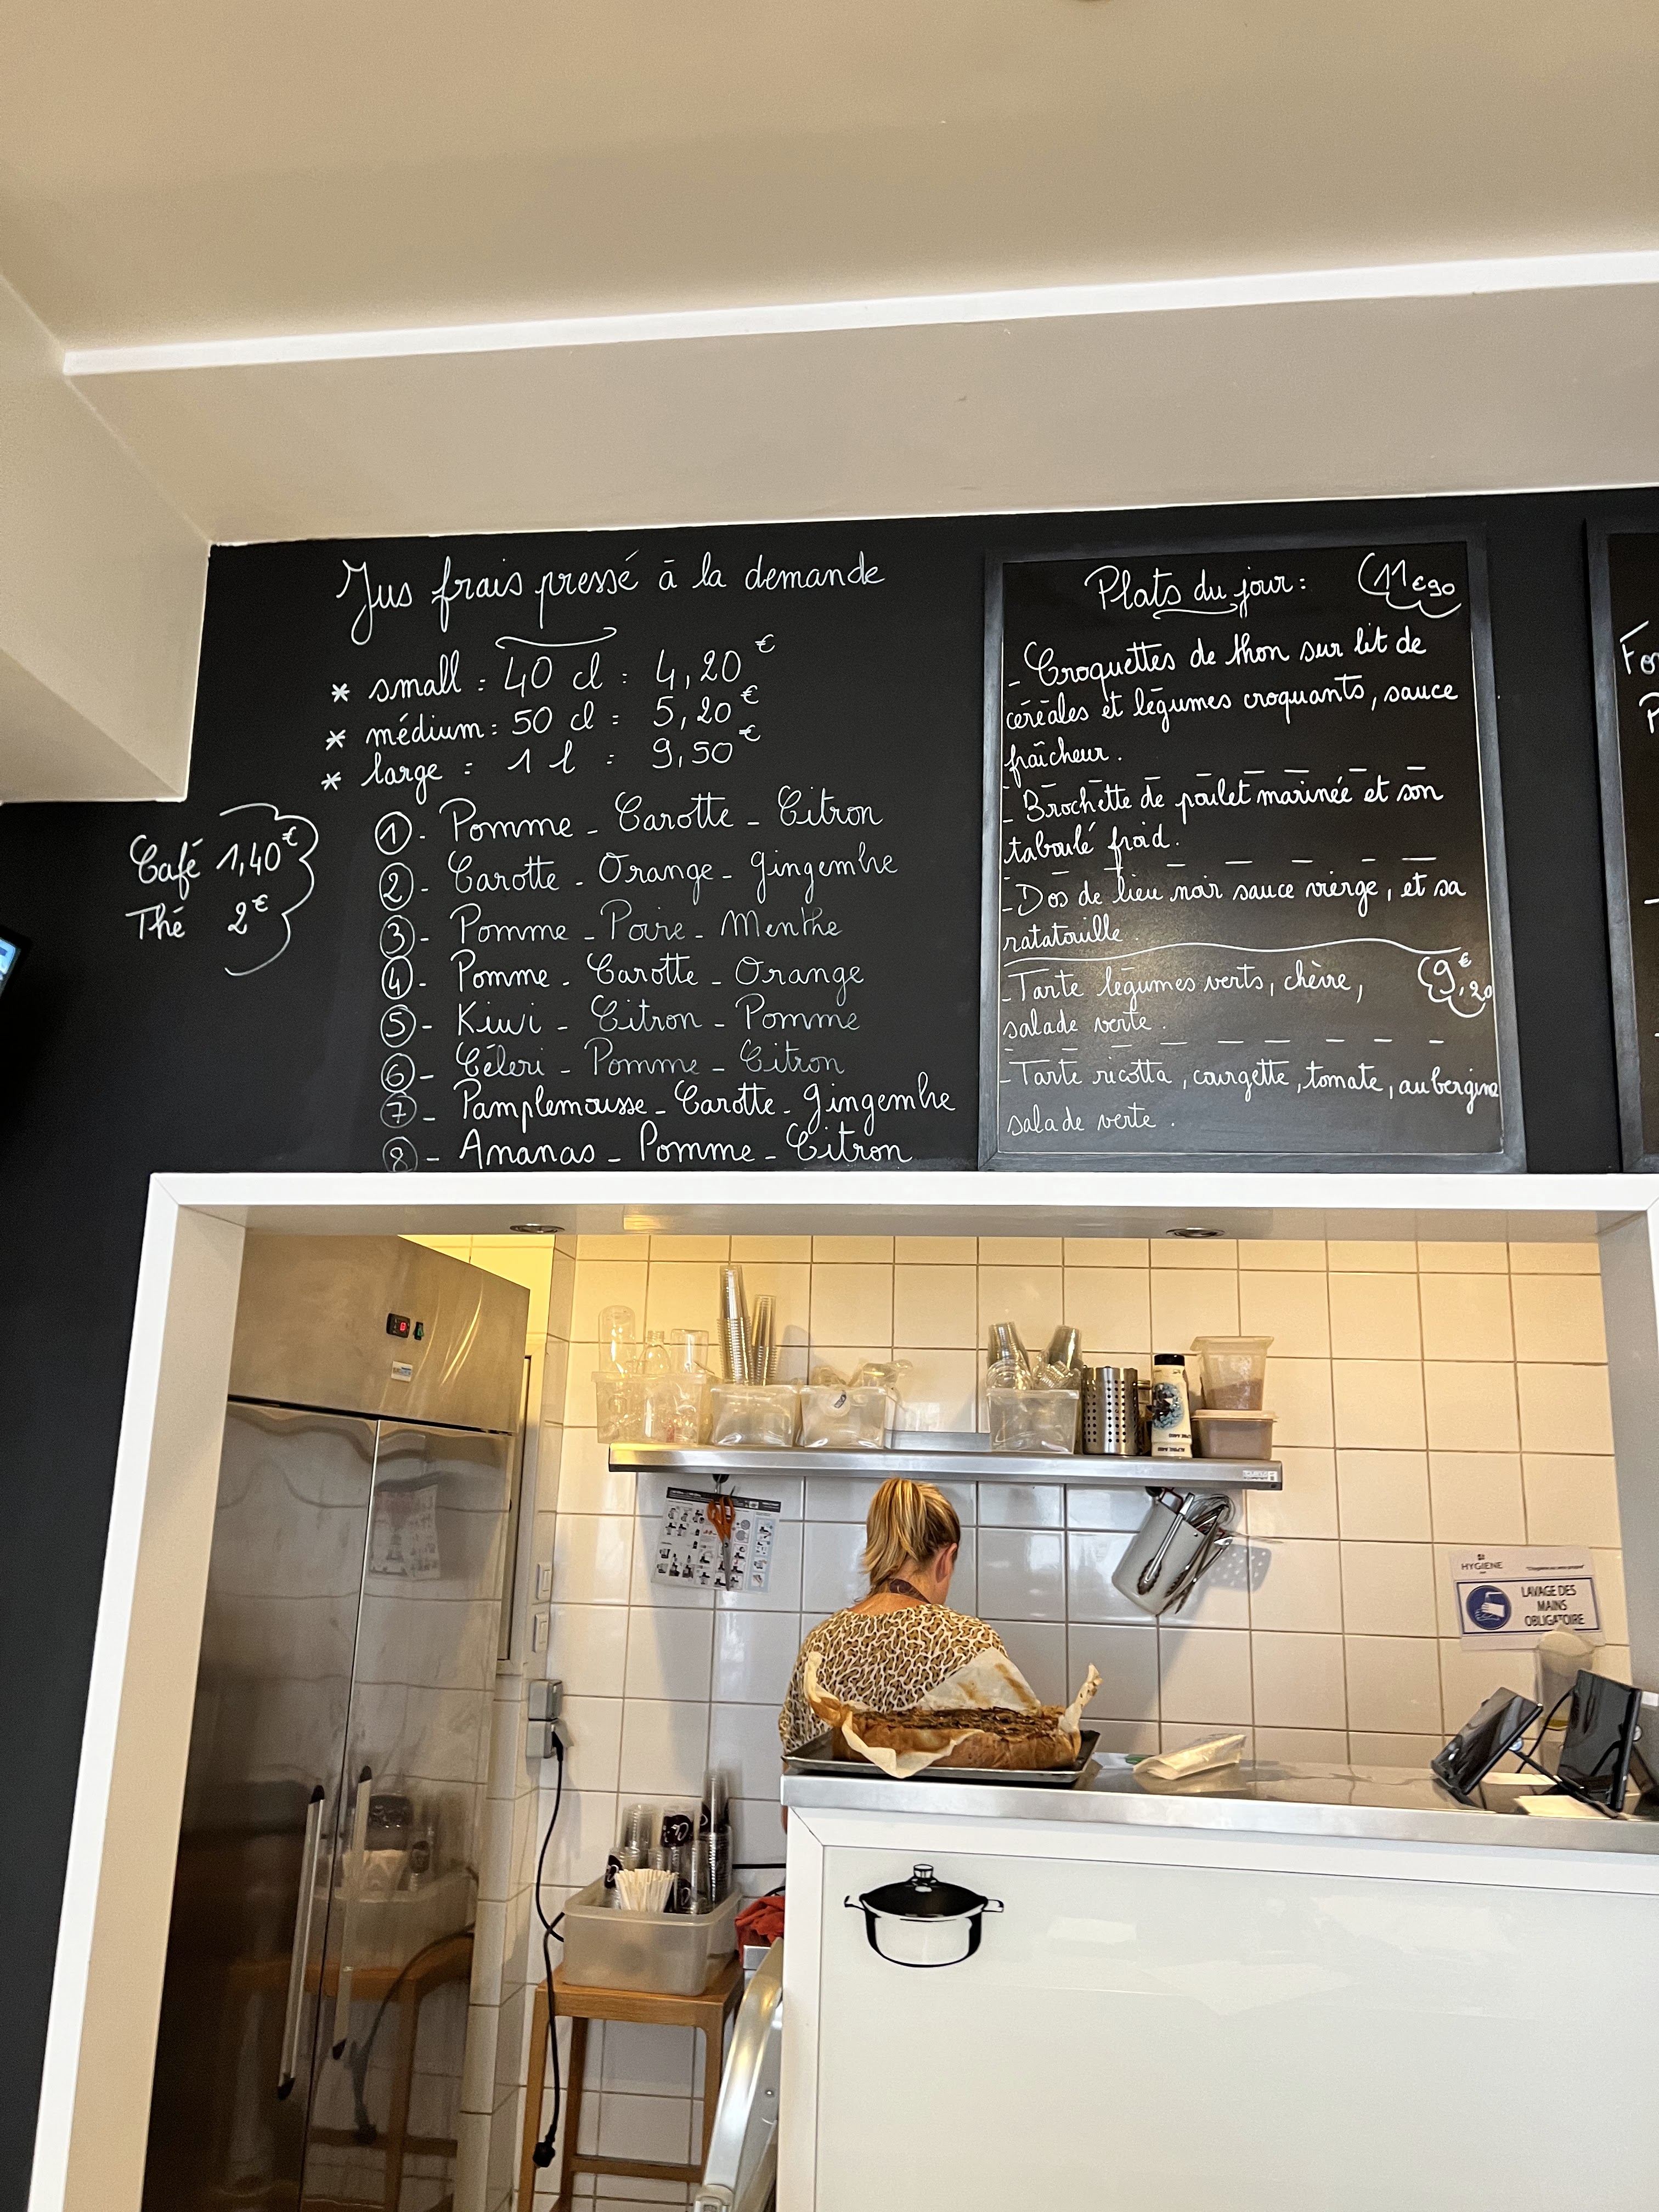 Jus frais pressé à la demande
* small : 40 cl : 4,20 €
* médium : 50 cl : 5,20 €
* large : 1 l : 9,50 €
Café 1,40 €
Thé 2 €
1 - Pomme - Carotte - Citron
2 - Carotte - Orange - Gingembre
3 - Pomme - Poire - Menthe
4 - Pomme - Carotte - Orange
5 - Kiwi - Citron - Pomme
6 - Céleri - Pomme - Citron
7 - Pamplemousse - Carotte - Gingembre
8 - Ananas - Pomme - Citron
Plats du jour : 11€90
- Croquettes de thon sur lit de
céréales et légumes croquants, sauce
fraîcheur.
- Brochette de poulet marinée et son
taboulé froid.
- Dos de lieu noir sauce vierge, et sa
ratatouille.
- Tarte légumes verts, chèvre, 9€,20
salade verte.
- Tarte ricotta, courgette, tomate, aubergine
salade verte.
HYGIENE
LAVAGE DES
MAINS
OBLIGATOIRE